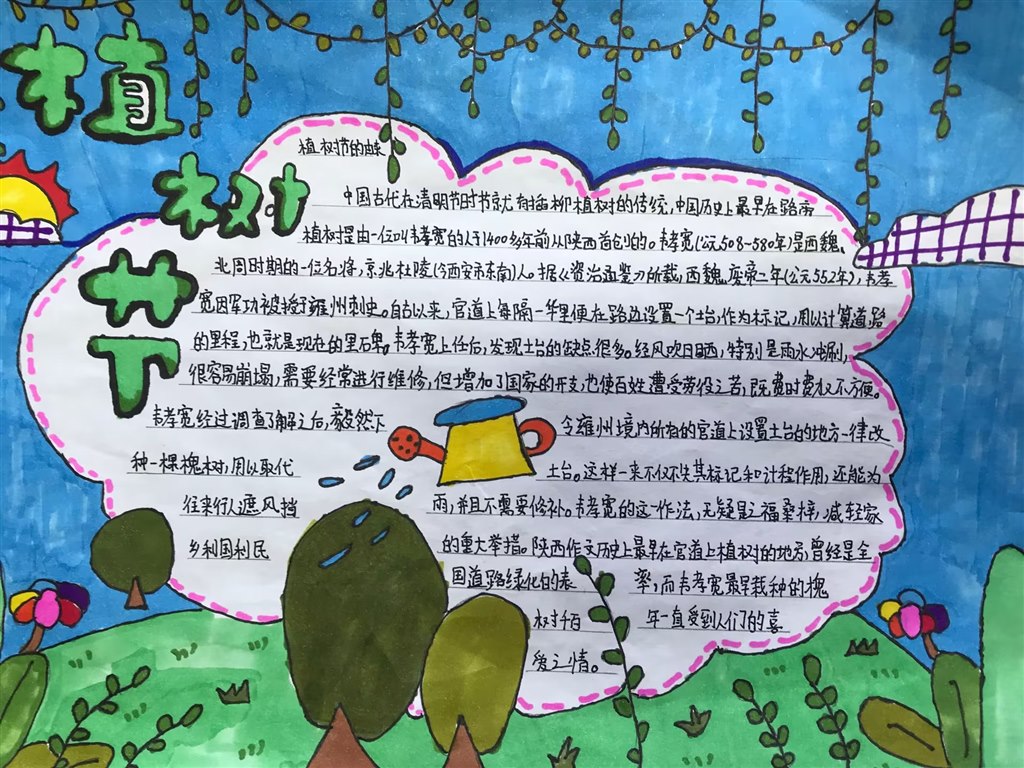 植树节
植树节的由来
中国古代在清明节时节就有插柳植树的传统,中国历史上最早在路旁
植树是由一位叫韦孝宽的人于1400多年前从陕西首创的。韦孝宽(公元508-580年)是西魏、
北周时期的一位名将,京兆杜陵(今西安市东南)人。据《资治通鉴》所载,西魏废帝二年(公元552年),韦孝
宽因军功被授予雍州刺史。自古以来,官道上每隔一华里便在路边设置一个土台,作为标记,用以计算道路
的里程,也就是现在的里石碑。韦孝宽上任后,发现土台的缺点很多。经风吹日晒,特别是雨水冲刷,
很容易崩塌,需要经常进行维修,但增加了国家的开支,也使百姓遭受劳役之苦,既费时费力又不方便。
韦孝宽经过调查了解之后,毅然下令雍州境内所有的官道上设置土台的地方一律改
种一棵槐树,用以取代土台。这样一来不仅不失其标记和计程作用,还能为
往来行人遮风挡雨,并且不需要修补。韦孝宽的这一作法,无疑是造福桑梓,减轻家
乡利国利民的重大举措。陕西作文历史上最早在官道上植树的地方,曾经是全
国道路绿化的表率,而韦孝宽最早栽种的槐
树千百年一直受到人们的喜
爱之情。